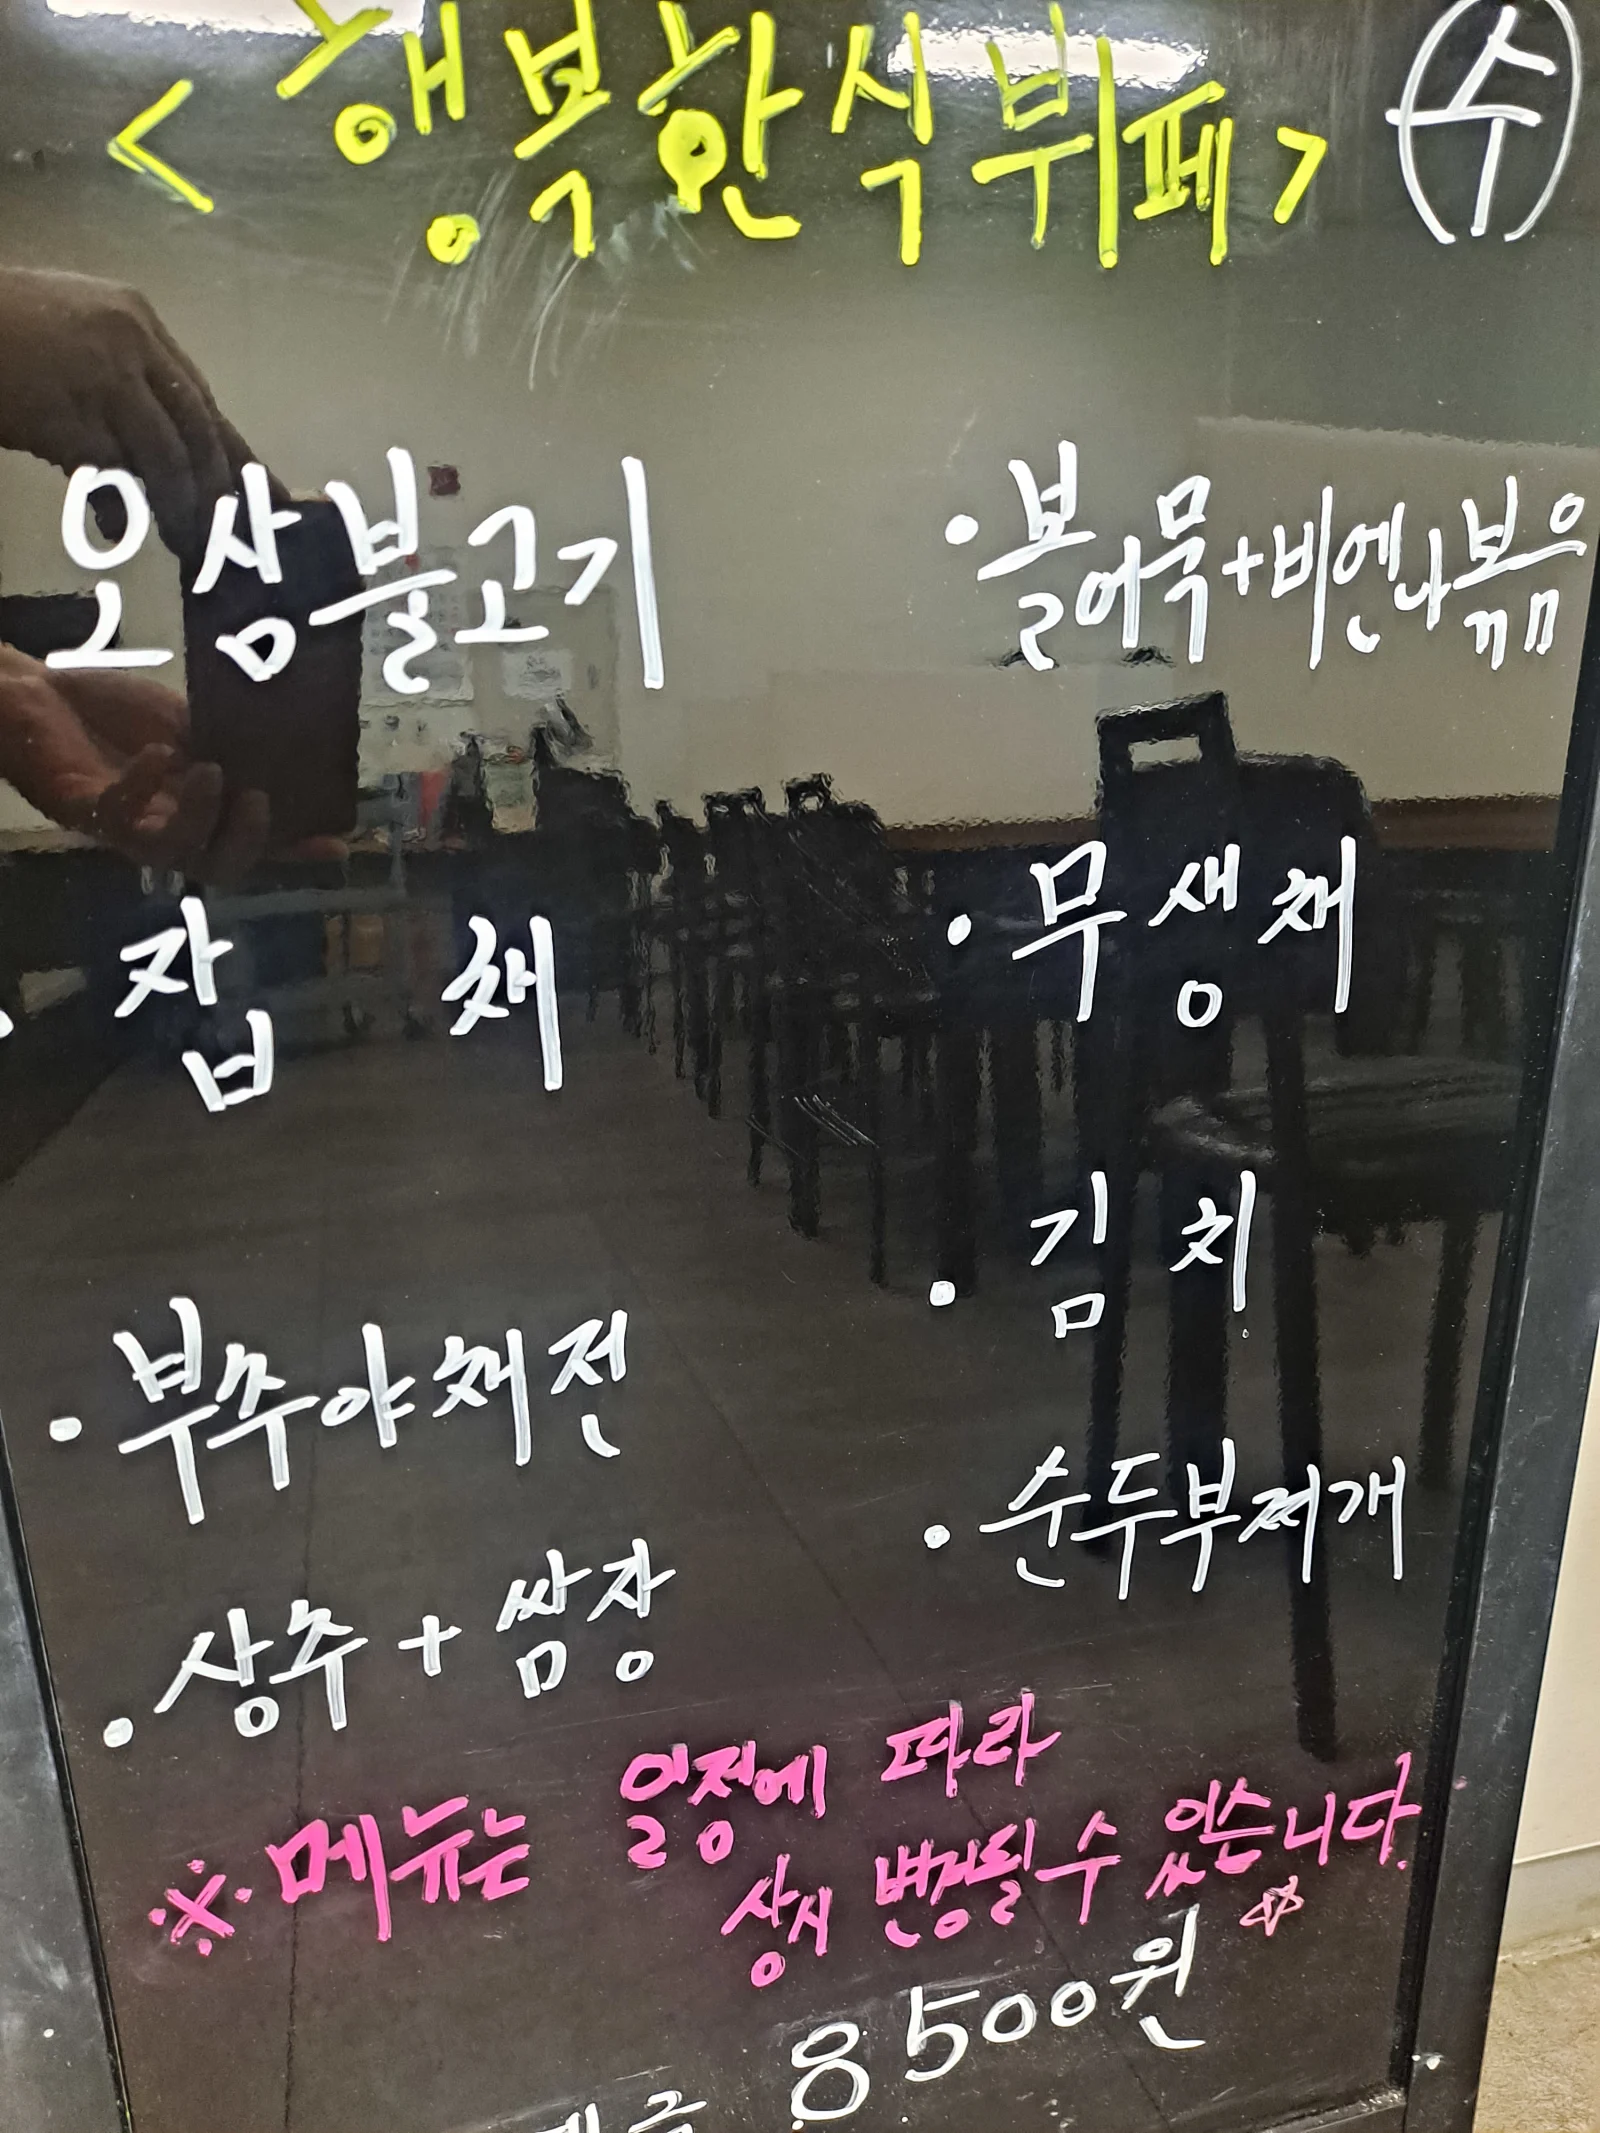 <행복한식뷔페> 수
오삼불고기
• 볼어묵+비엔나볶음
• 잡 채
• 무생채
• 김 치
• 부추야채전
• 순두부찌개
• 상추+쌈장
※ 메뉴는 일정에 따라
상시 변경될 수 있습니다.☆
8500원